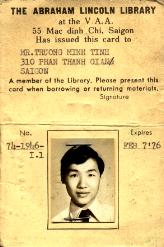 THE ABRAHAM LINCOLN LIBRARY
at the V A A.
55 Mac dinh Chi, Saigon
Has issued this card to
MR.TRUONG MINH TINH
310 PHAN THANH GIAN
SAIGON
A member of the Library. Please present this
card when borrowing or returning materials.
Signature
No. Expires
74-1946-
I.1
FEB 7'76